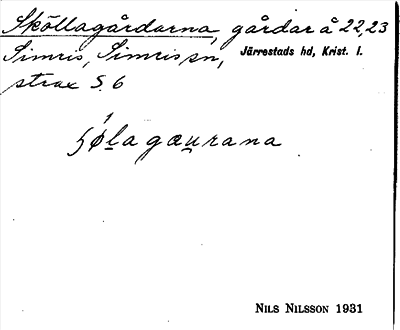 Sköllagårdarna, gårdar å 22,23
Simris, Simris sn, Järrestads hd, Krist. l.
strax S. 6
NILS NILSSON 1931